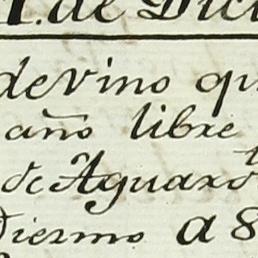 1. de Dici
de vino qu
año libre
de Aguard.te
Diezmo a 8